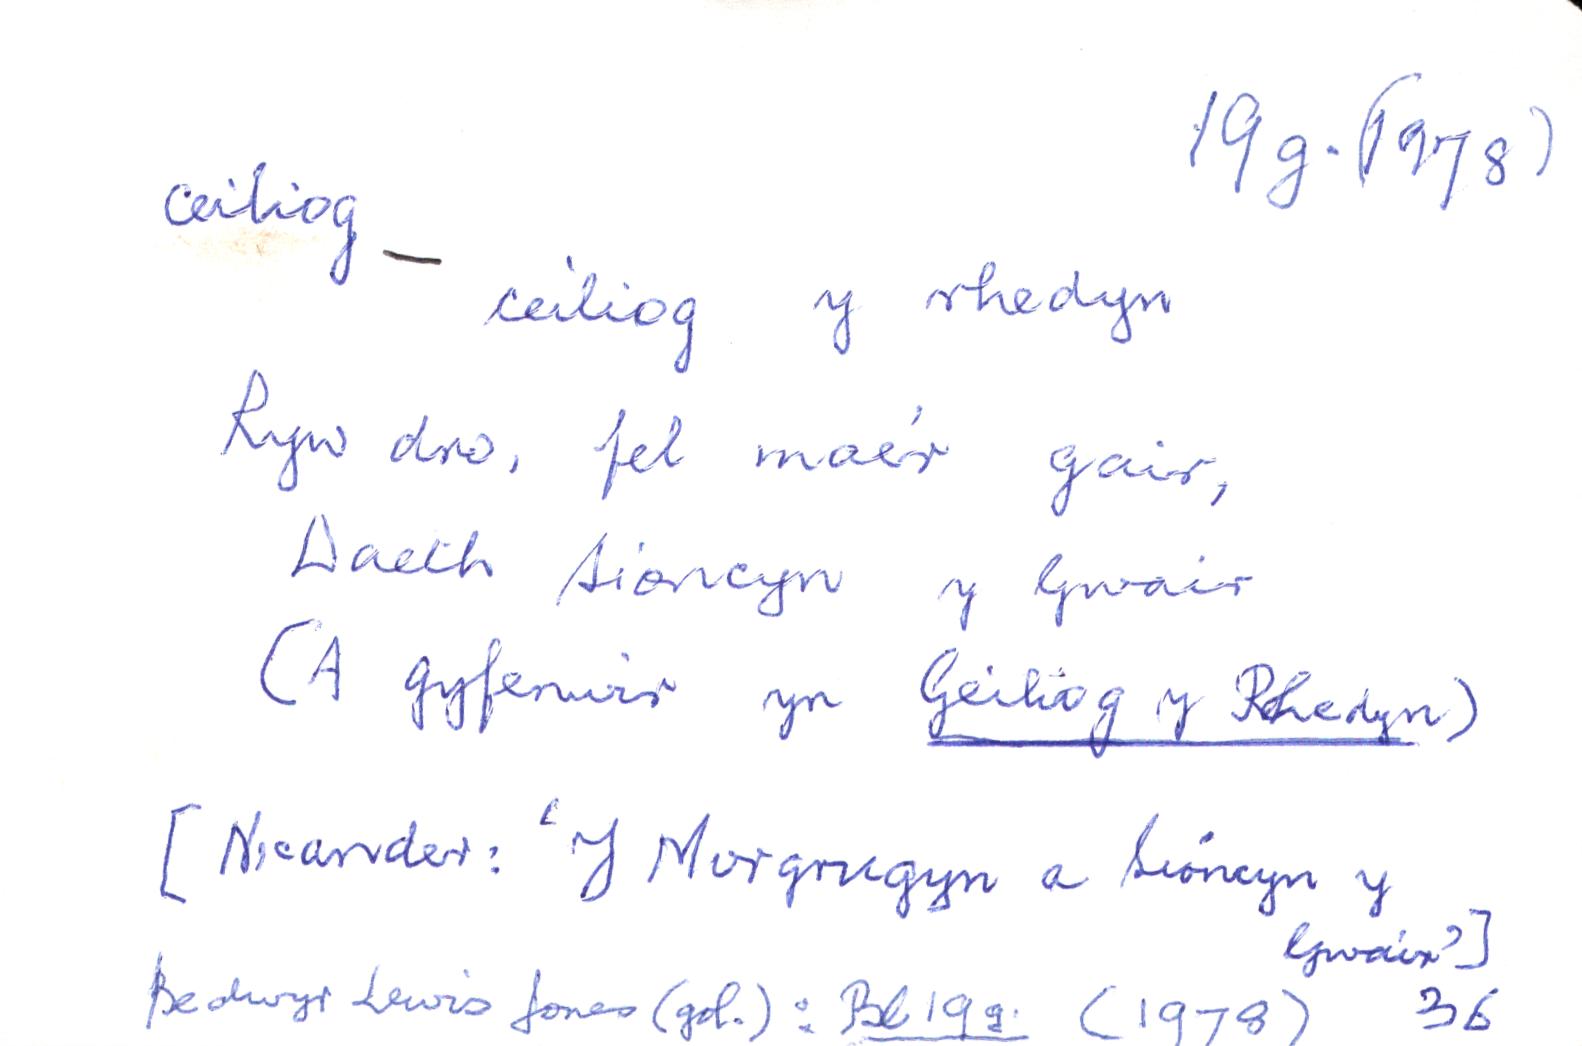 19g. (1978)
ceiliog –
ceiliog y rhedyn
Ryw dro, fel mae'r gair,
Daeth Sioncyn y Gwair
(A gyfenwir yn Geiliog y Rhedyn)
[Nicander: 'Y Morgrugyn a Sioncyn y
Gwair']
Bedwyr Lewis Jones (gol.): Bl 19g. (1978) 36